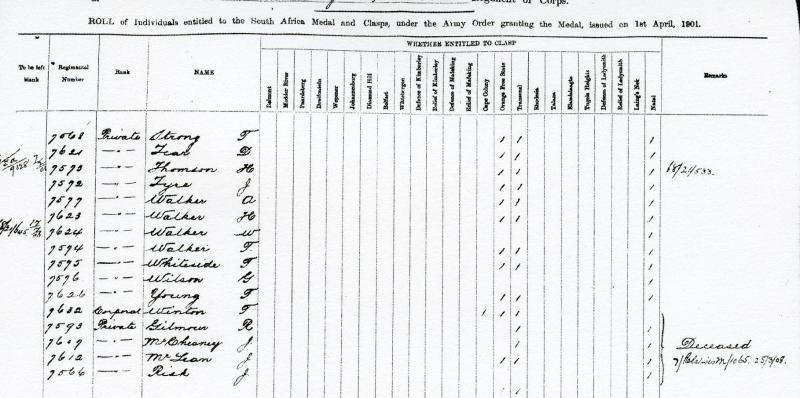 Regiment or Corps.
ROLL of Individuals entitled to the South Africa Medal and Clasps, under the Army Order granting the Medal, issued on 1st April, 1901.
WHETHER ENTITLED TO CLASP
To be left blank Regimental Number Rank NAME Belmont Modder River Paardeberg Driefontein Wepener Johannesburg Diamond Hill Belfast Wittebergen Defence of Kimberley Relief of Kimberley Defence of Mafeking Relief of Mafeking Cape Colony Orange Free State Transvaal Rhodesia Talana Elandslaagte Tugela Heights Defence of Ladysmith Relief of Ladysmith Laing's Nek Natal Remarks
7568 Private Strong T / / /
7621 —"— Tear D / / /
7573 —"— Thomson H / / / 68/21/533.
7592 —"— Tyre J / / /
7577 —"— Walker A / / /
7623 —"— Walker H / / /
7624 —"— Walker W / / /
7594 —"— Walker T / / /
7575 —"— Whiteside T / / /
7576 —"— Wilson G / / /
7626 —"— Young T / / /
7632 Corporal Winton T / / / /
7593 Private Gilmour R / /
7617 —"— McChesney J / / Deceased
7612 —"— McLean J / / / 25/3/08.
7566 —"— Risk J /